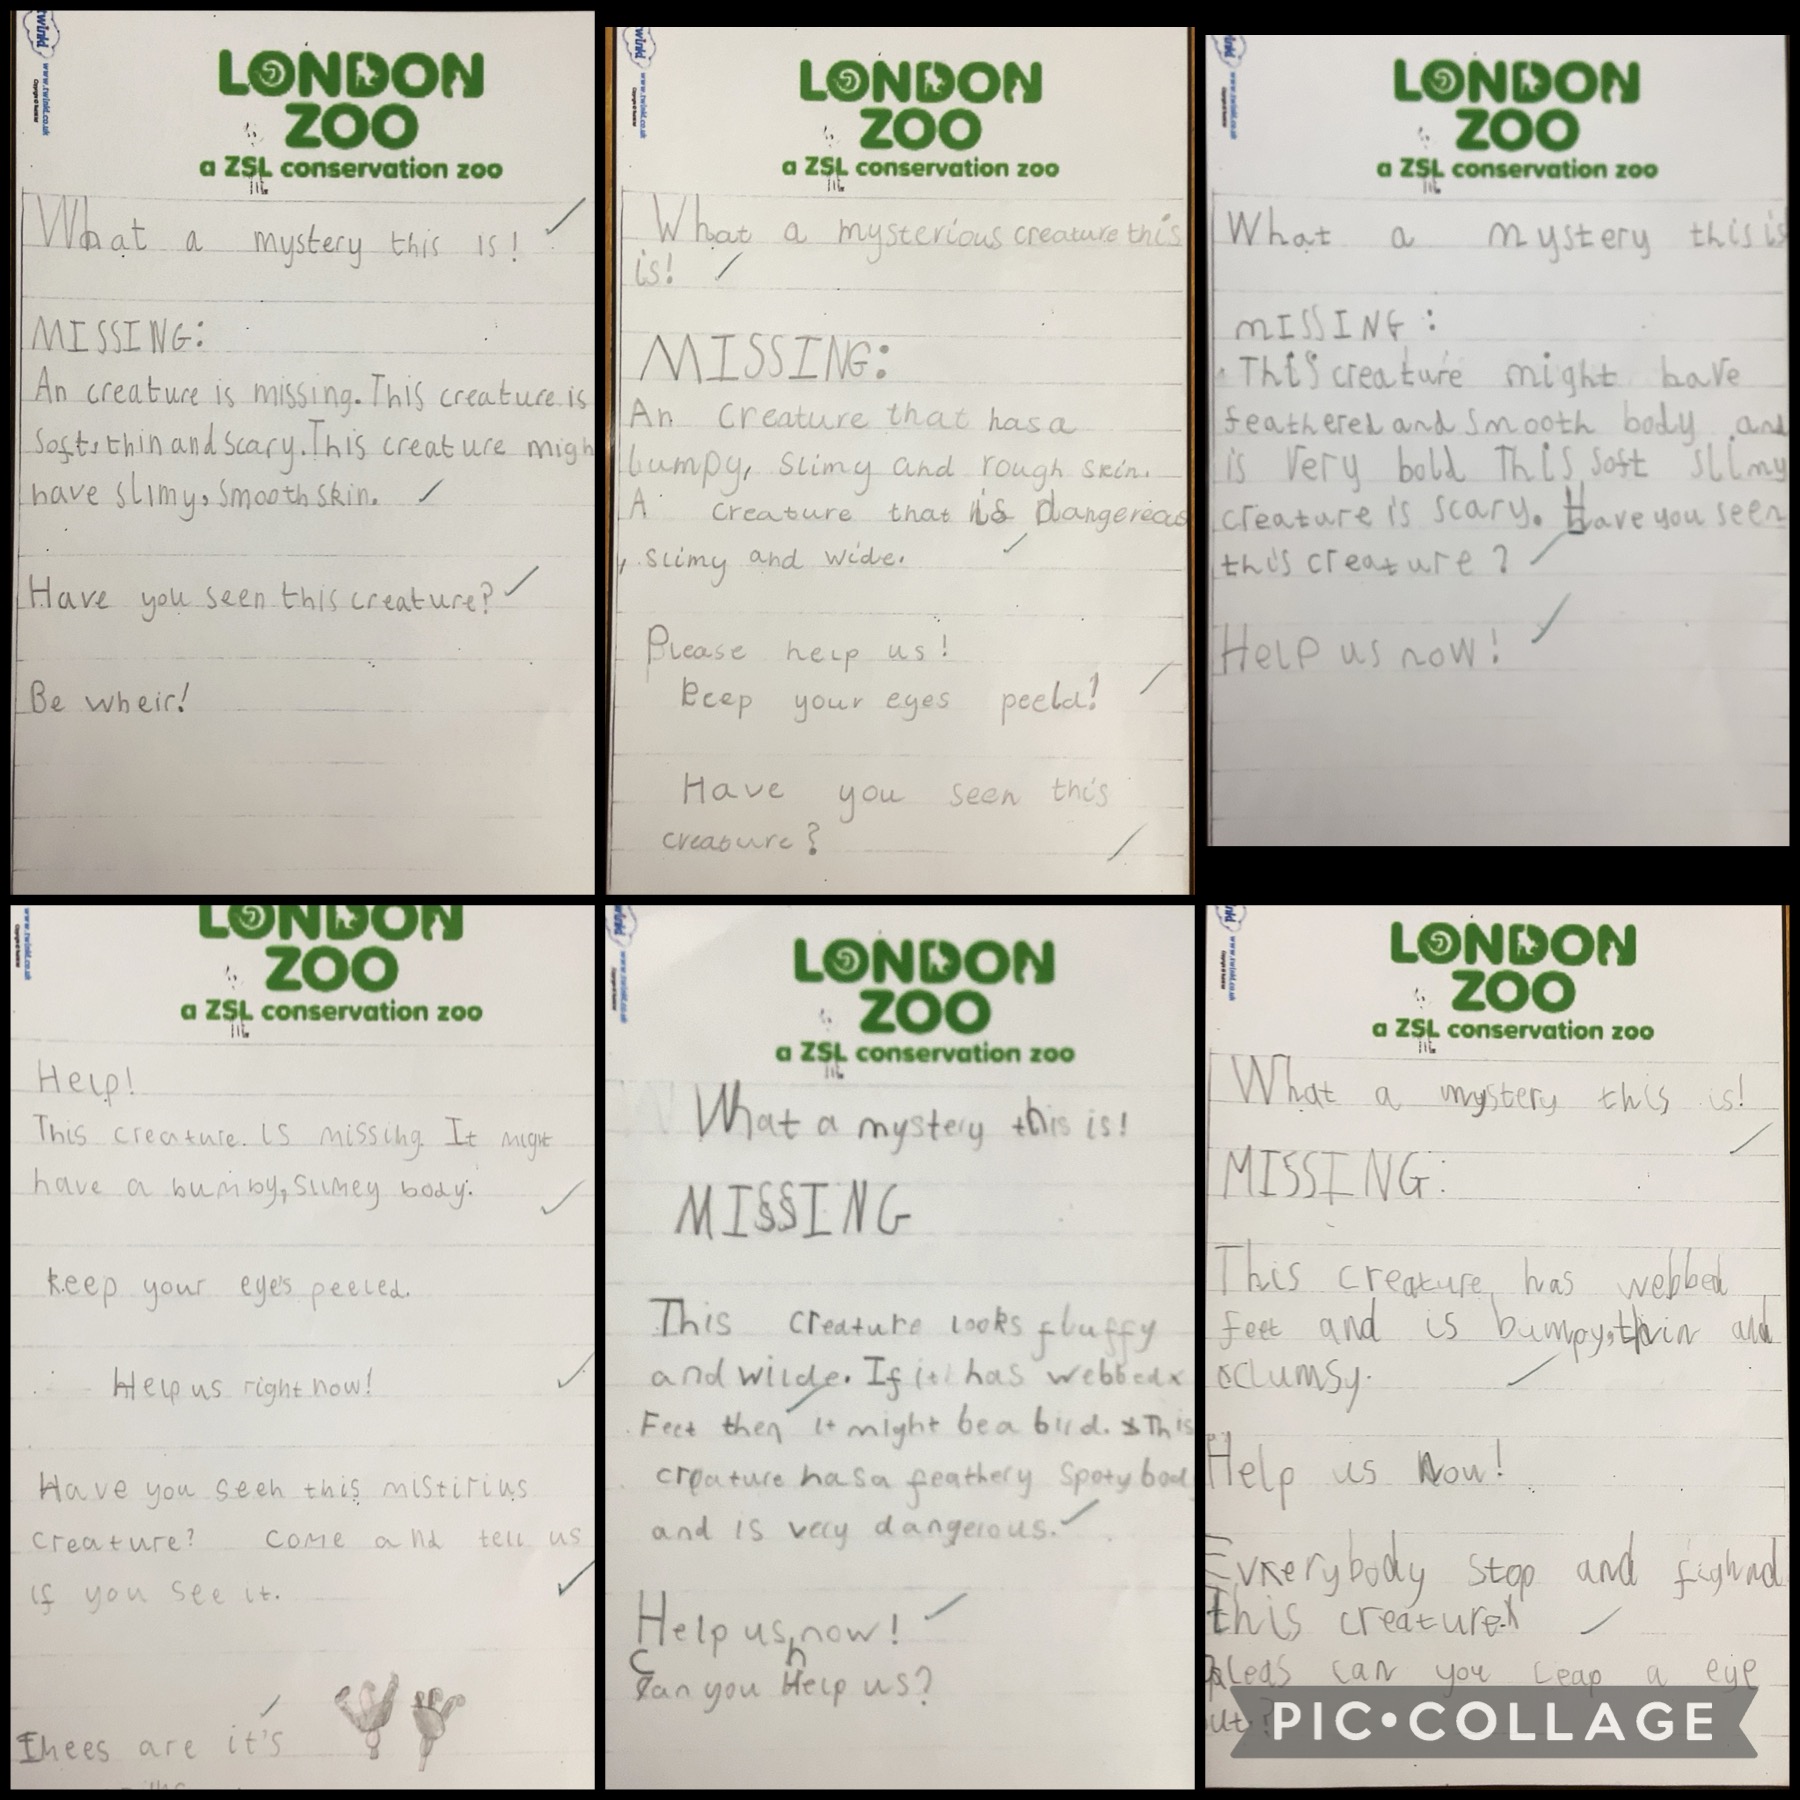 twinkl
www.twinkl.co.uk
LONDON
ZOO
a ZSL conservation zoo
What a mystery this is!
MISSING:
An creature is missing. This creature is
soft, thin and scary. This creature migh
have slimy, smooth skin.
Have you seen this creature?
Be wheir!
twinkl
www.twinkl.co.uk
LONDON
ZOO
a ZSL conservation zoo
What a mysterious creature this
is!
MISSING:
An creature that has a
bumpy, slimy and rough skin.
A creature that is dangereous
, slimy and wide.
Please help us!
keep your eyes peeld!
Have you seen this
creature?
twinkl
www.twinkl.co.uk
LONDON
ZOO
a ZSL conservation zoo
What a mystery this is
mISSING:
This creature might have
feathered and smooth body and
is very bold This soft slimy
creature is scary. Have you seen
this creature?
Help us now!
www.twinkl.co.uk
LONDON
ZOO
a ZSL conservation zoo
Help!
This creature. is missing. It might
have a bumby, slimey body.
keep your eye's peeled.
Help us right now!
Have you seen this mistirius
creature? come and tell us
if you see it.
Thees are it's
twinkl
www.twinkl.co.uk
LONDON
ZOO
a ZSL conservation zoo
What a mystery this is!
MISSING
This creature looks fluffy
and wilde. If it has webbed
Feet then it might be a bird. This
creature has a feathery spoty bod
and is very dangerous.
Help us now!
Can you help us?
twinkl
www.twinkl.co.uk
LONDON
ZOO
a ZSL conservation zoo
What a mystery this is!
MISSING:
This creature has webbed
feet and is bumpy, thin and
clumsy.
Help us now!
Everybody stop and fighnd
this creature.
pleas can you ceap a eye
out?
PIC•COLLAGE